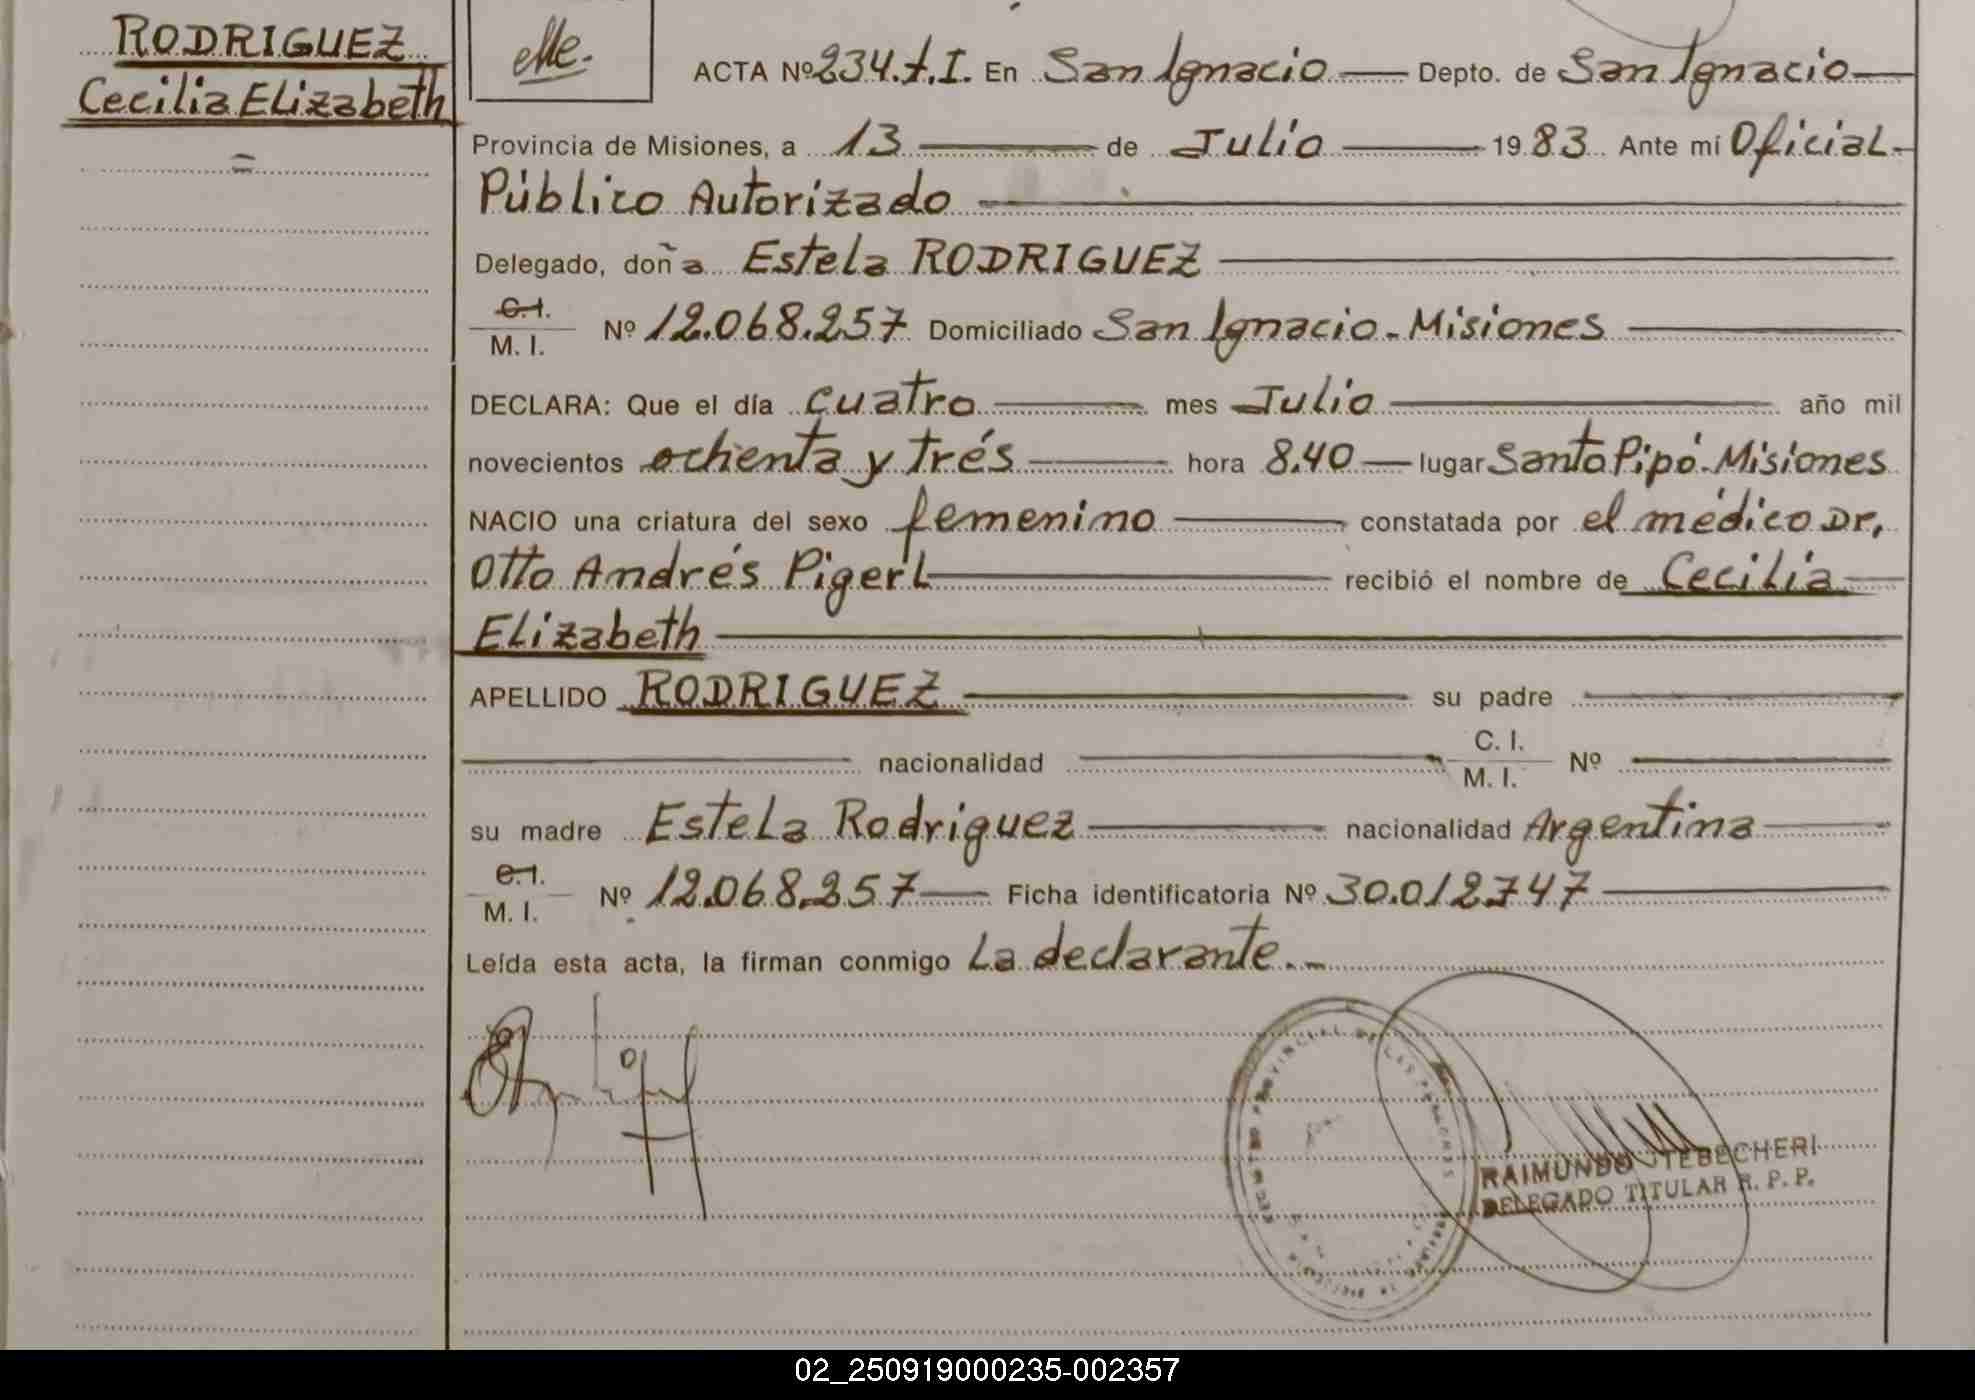 RODRIGUEZ
Cecilia Elizabeth
ACTA Nº 234.t.I. En San Ignacio Depto. de San Ignacio
Provincia de Misiones, a 13 de Julio 1983 Ante mí Oficial
Público Autorizado
Delegado, doña Estela RODRIGUEZ
C.I.
M. I. Nº 12.068.257 Domiciliado San Ignacio - Misiones
DECLARA: Que el día cuatro mes Julio año mil
novecientos ochenta y trés hora 8.40 lugar Santo Pipó - Misiones
NACIO una criatura del sexo femenino constatada por el médico Dr,
Otto Andrés Pigerl recibió el nombre de Cecilia
Elizabeth
APELLIDO RODRIGUEZ su padre
nacionalidad C. I. M. I. Nº
su madre Estela Rodriguez nacionalidad Argentina
C.I.
M. I. Nº 12.068.257 Ficha identificatoria Nº 30.012.747
Leída esta acta, la firman conmigo La declarante.-
RAIMUNDO TEBECHERI
DELEGADO TITULAR R. P. P.
02_250919000235-002357